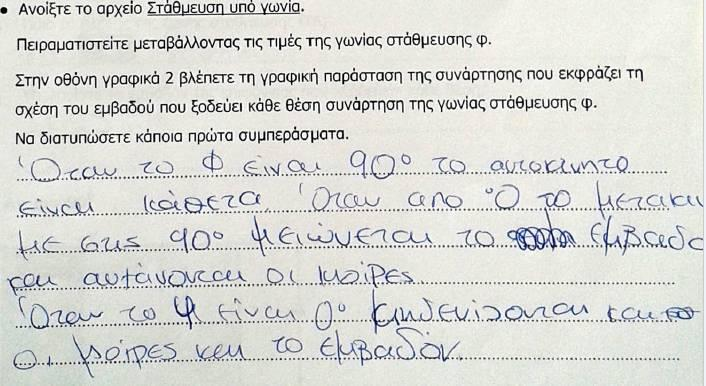 • Ανοίξτε το αρχείο Στάθμευση υπό γωνία.
Πειραματιστείτε μεταβάλλοντας τις τιμές της γωνίας στάθμευσης φ.
Στην οθόνη γραφικά 2 βλέπετε τη γραφική παράσταση της συνάρτησης που εκφράζει τη
σχέση του εμβαδού που ξοδεύει κάθε θέση συνάρτηση της γωνίας στάθμευσης φ.
Να διατυπώσετε κάποια πρώτα συμπεράσματα.
Όταν το φ είναι 90° το αυτοκινητο
είναι κάθετα. Όταν απο 0 το μετακι
με στις 90° μειώνεται το εμβαδο
και αυξάνονται οι μοίρες
Όταν το φ είναι 0° μηδενίζονται και
οι μοίρες και το εμβαδόν.